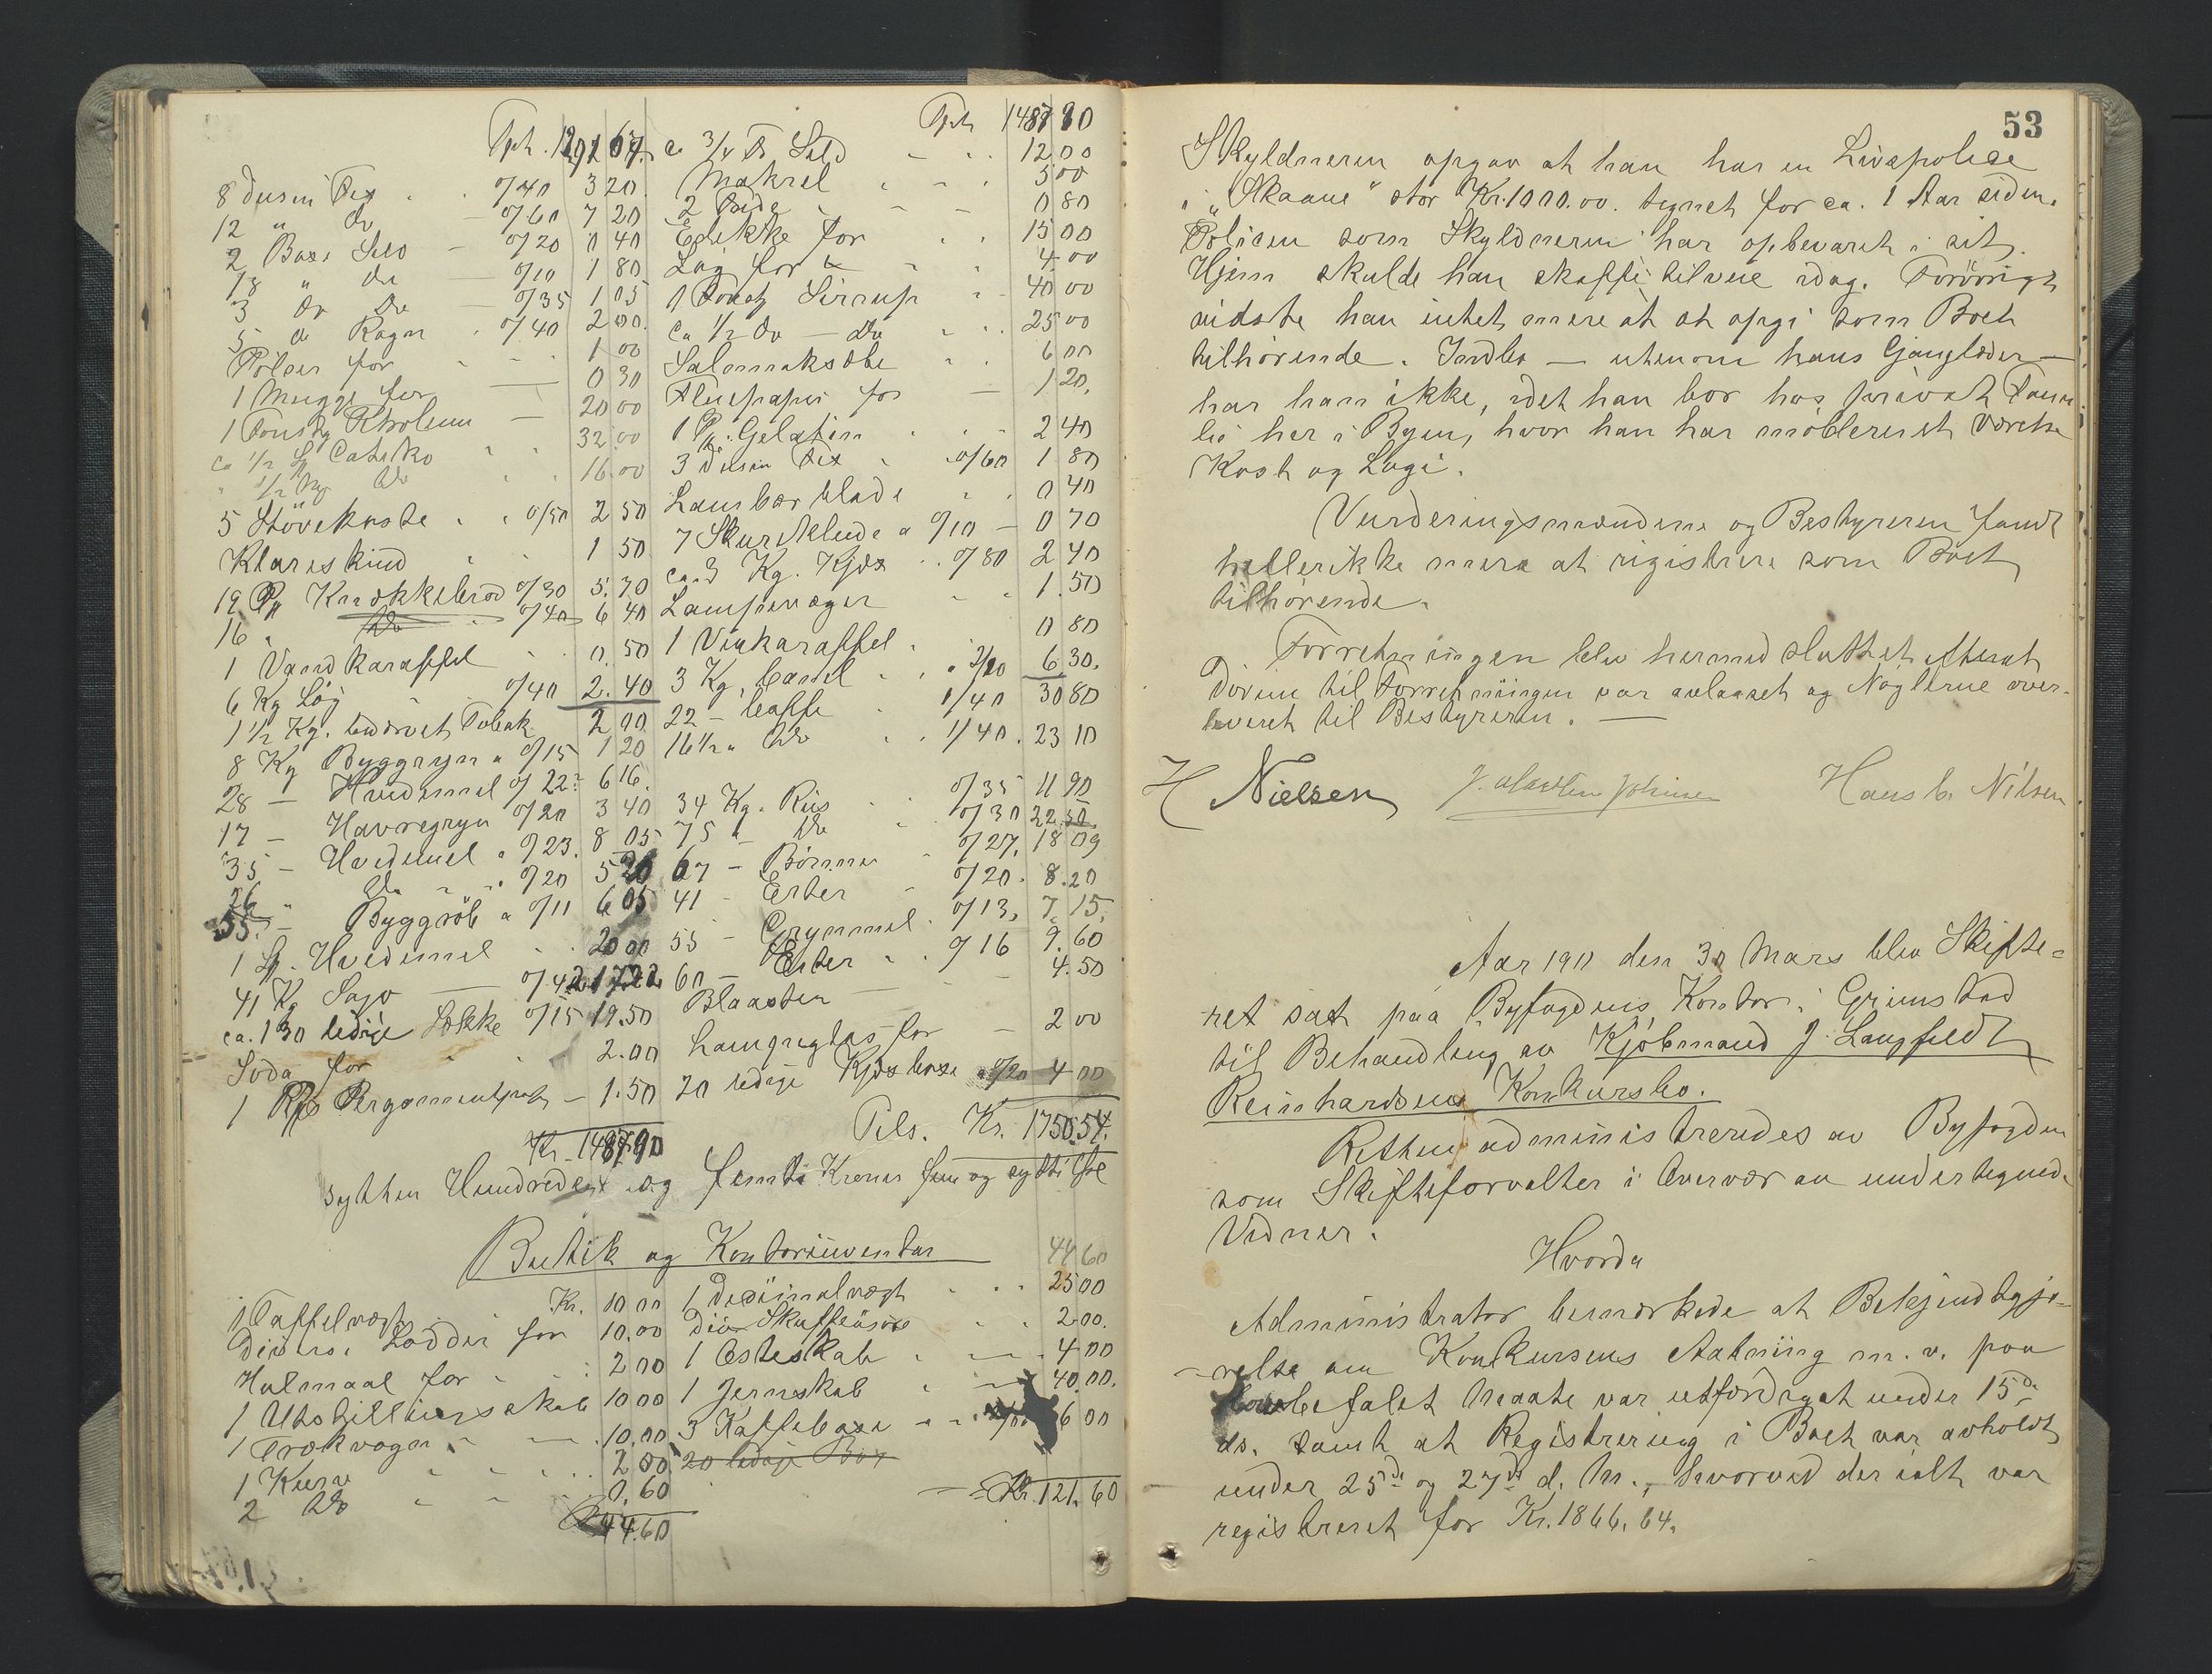 8 Dusin Fix 0/40 3 20
12 " Do 0/60 7 20
2 Boxe Sild 0/20 0 40
18 " do 0/10 1 80
3 do do 0/35 1 05
5 do Rogn 0/40 2 00
Pölser for 1 00
1 Mugge for 0 30
20 00
32 00
16.00
5 Stövekoste 0/50 2 50
1 50
19 Pk Knækkebröd 0/30 5.70
16 " Do 0/40 6 40
1 Vandkaraffel 0.50
6 Kg Løg 0/40 2.40
1 1/2 Kg. Tobak 2 00
8 Kg Byggryn a 0/15 1 20
28 — Hvedemel 0/22 6 16
17 — Havregryn 0/20 3 40
35 — Hvedemel " 0/23. 8 05
26 " Do 0/20 5 20
55 — a 0/11 6 05
1 Hvedemel 20 00
41 Kg Sago 0/42 17.22
ca. 130 ledige Sække 0/15 19.50
Soda for 2.00
1 1.50
Kr. 1487.90
Tpt 1487 90
ca 3/4 Sild 12 00
Makrel 5 00
2 0 80
Edikke for 15 00
4.00
Sirrup 40 00
ca 1/2 do — do 25 00
Salmiaksæbe 6 00
Fluepapir for 1 20
1 Gelatin 2 40
3 Dusin Fix 0/60 1 80
Laurbærblade 0 40
7 Skureklude a 0/10 0 70
ca. 3 Kg. Kjæx 0/80 2 40
Lampevæger 1.50
1 Vinkaraffel 0 80
3 Kg. Canel 2/10 6 30
22 — Caffe 1/40 30 80
16 1/2 " Do 1/40 23 10
34 Kg. Ris 0/35 11 90
75 " Do 0/30 22.50
67 — Bönner 0/27. 18 09
41 — Erter 0/20. 8.20
55 — Grynmel 0/13, 7.15
60 — Erter 0/16 9.60
4.50
Lampeglas for 2 00
20 ledige Kjæxboxe a 0/20 4 00
Tils. Kr. 1750.54.
sytten Hundrede og femti Kroner fem og sytti Øre
Butik og Kontorinventar
1 Taffelvægt Kr. 10 00
Diverse Lodder for 10.00
Hulmaal for 2 00
1 Utstillingsskab 10 00
1 Trækvogn 10.00
1 Kurv 2 00
2 Do 0.60
44.60
44 60
1 Desimalvægt 25 00
Div Skuffeösere 2.00.
1 Osteskab 4 00
1 Jernskab 40.00.
3 Kaffeboxe 6 00
20 ledige Box
Kr. 121.60
53
Skyldneren opgav at han har en Livspolice
i "Skaane" stor Kr. 1000.00. tegnet for ca. 1 Aar siden.
Policen som Skyldneren har opbevaret i sit
Hjem skulde han skaffe tilveie idag. Forövrigt
vidste han intet mere at opgi som Boet
tilhörende. Indbo — utenom hans Gangklæder —
har han ikke, idet han bor hos privat Fami-
lie her i Byen, hvor han har möbleret Værelse
Kost og Logi.
Vurderingsmændene og Bestyreren fandt
hellerikke mere at registrere som Boet
tilhörende.
Forretningen blev hermed sluttet efterat
Dören til Forretningen var avlaaset og Nöglerne over-
leveret til Bestyreren. —
H Nielsen
Hans C. Nilsen
Aar 1911 den 30 Mars blev Skifte-
ret sat paa Byfogdens Kontor i Grimstad
til Behandling av Kjöbmand J. Langfeldt
Reinhardsens Konkursbo.
Retten administreredes av Byfogden
som Skifteforvalter i Overvær av undertegnede
Vidner.
Hvorda
Administrator bemærkede at Bekjendtgjö-
relse om Konkursens Aabning m. v. paa
lovbefalet Maate var utfærdiget under 15de
ds. samt at Registrering i Boet var avholdt
under 25de og 27de d. M., hvorved der ialt var
registreret for Kr. 1866.64.